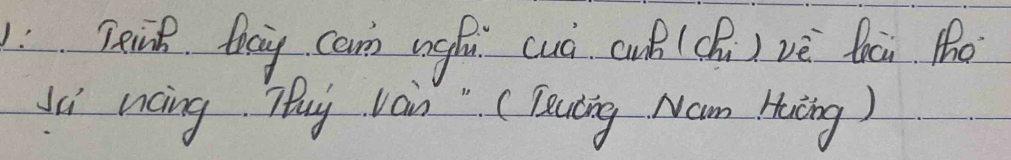 1: Trình bày cảm nghĩ của anh (chị) về bài thơ
sử nàng Thuý Vân" (Trương Nam Hương)